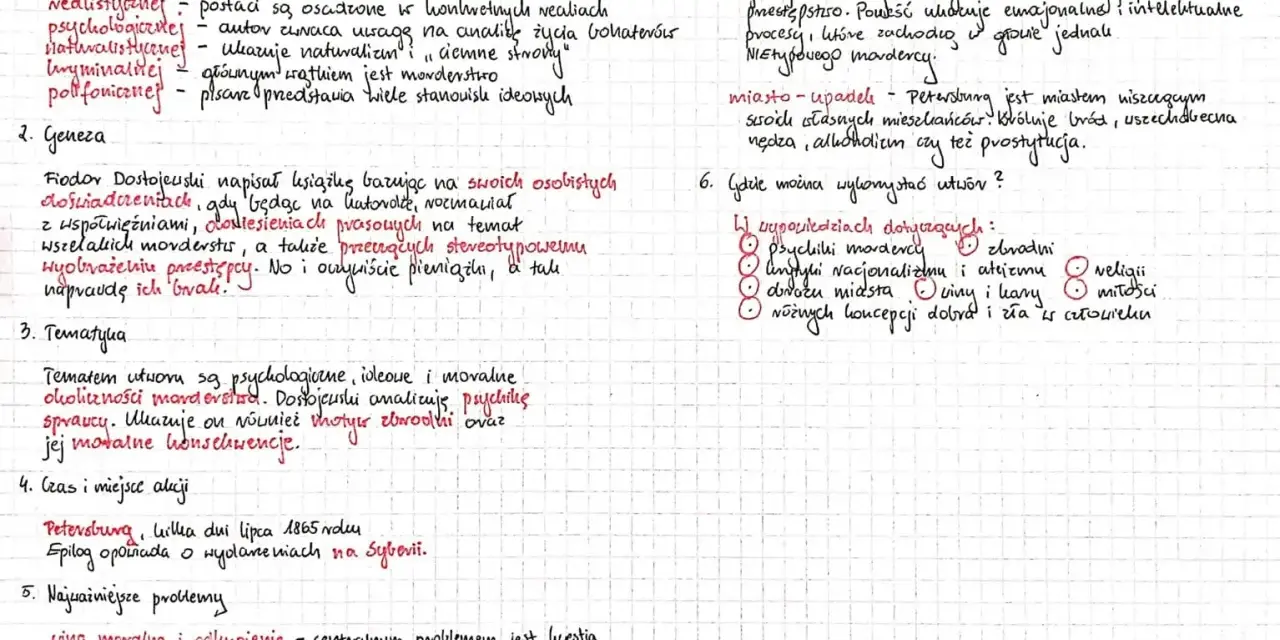 realistycznej - postaci są osadzone w konkretnych realiach
psychologicznej - autor zwraca uwagę na analizę życia bohaterów
naturalistycznej - ukazuje naturalizm i „ciemne strony"
kryminalnej - głównym wątkiem jest morderstwo
polifonicznej - pisarz przedstawia wiele stanowisk ideowych
2. Geneza
Fiodor Dostojewski napisał książkę bazując na swoich osobistych
doświadczeniach, gdy będąc na katordze, rozmawiał
z współwięźniami, doniesieniach prasowych na temat
wszelakich morderstw, a także przeczących stereotypowemu
wyobrażeniu przestępcy. No i oczywiście pieniążki, a tak
naprawdę ich brak.
3. Tematyka
Tematem utworu są psychologiczne, ideowe i moralne
okoliczności morderstwa. Dostojewski analizuję psychikę
sprawcy. Ukazuje on również motyw zbrodni oraz
jej moralne konsekwencje.
4. Czas i miejsce akcji
Petersburg, kilka dni lipca 1865 roku
Epilog opowiada o wydarzeniach na Syberii.
5. Najważniejsze problemy
wina moralna i odkupienie - centralnym problemem jest kwestia
przestępstwo. Powieść ukazuje emocjonalne i intelektualne
procesy, które zachodzą w głowie jednak
NIEtypowego mordercy.
miasto - upadek - Petersburg jest miastem niszczącym
swoich własnych mieszkańców. Króluje bród, wszechobecna
nędza, alkoholizm czy też prostytucja.
6. Gdzie można wykorzystać utwór?
W wypowiedziach dotyczących:
psychiki mordercy zbrodni
krytyki racjonalizmu i ateizmu religii
obrazu miasta winy i kary miłości
różnych koncepcji dobra i zła w człowieku